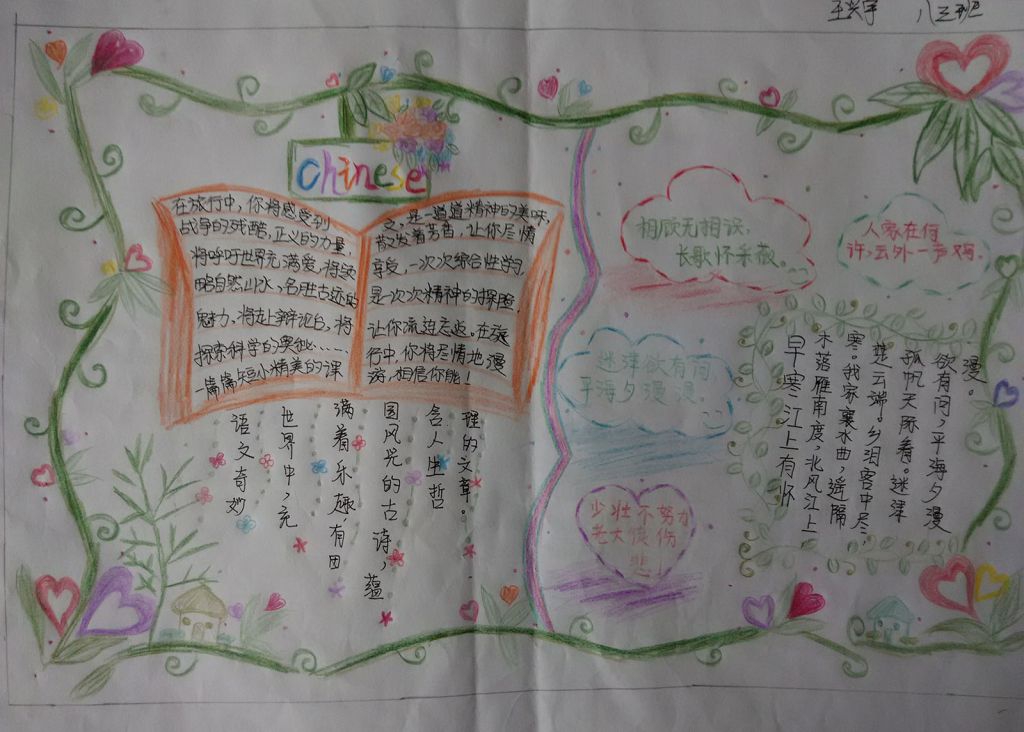 王兴宇 八三班
chinese
在旅行中,你将感受到
战争的残酷,正义的力量,
将呼吁世界充满爱,将领
略自然山水,名胜古迹的
魅力,将赴辩论台,将
探索科学的奥秘……
篇篇短小精美的课
文,是一道道精神的美味,
散发着芳香,让你尽情
享受,一次次综合性学习
是一次次精神的探险,
让你流连忘返。在旅
行中,你将尽情地漫
游,相信你能!
语文奇妙
世界中,充
满着乐趣有田
园风光的古诗,蕴
含人生哲
理的文章。
相顾无相识,
长歌怀采薇。
人家在何
许,云外一声鸡。
迷津欲有问
平海夕漫漫。
少壮不努力
老大徒伤
悲!
早寒江上有怀
木落雁南度,北风江上
寒。我家襄水曲,遥隔
楚云端,乡泪客中尽,
孤帆天际看。迷津
欲有问,平海夕漫
漫。